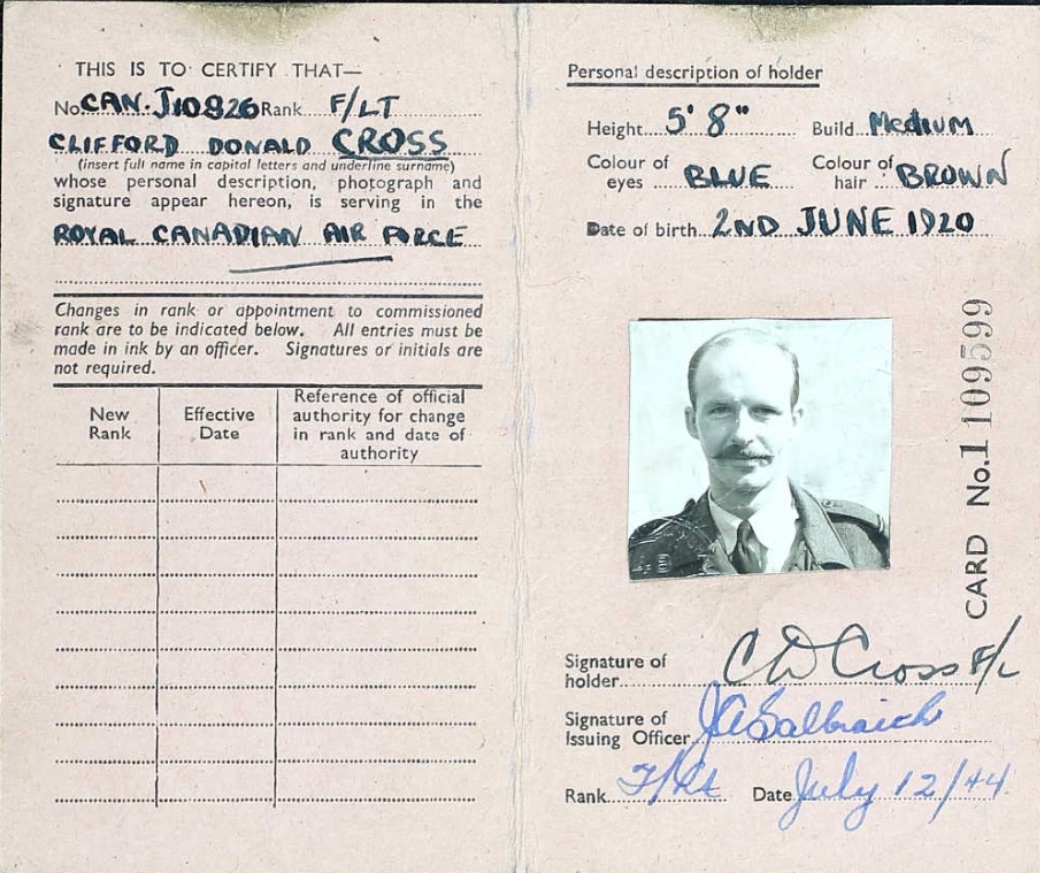 THIS IS TO CERTIFY THAT—
No. CAN. J10826 Rank F/LT
CLIFFORD DONALD CROSS
(insert full name in capital letters and underline surname)
whose personal description, photograph and
signature appear hereon, is serving in the
ROYAL CANADIAN AIR FORCE
Changes in rank or appointment to commissioned
rank are to be indicated below. All entries must be
made in ink by an officer. Signatures or initials are
not required.
New Rank
Effective Date
Reference of official
authority for change
in rank and date of
authority
Personal description of holder
Height 5' 8" Build Medium
Colour of eyes BLUE Colour of hair BROWN
Date of birth 2ND JUNE 1920
CARD No. 1 109599
Signature of holder C D Cross F/L
Signature of Issuing Officer J A Galbraith
Rank F/Lt Date July 12/44